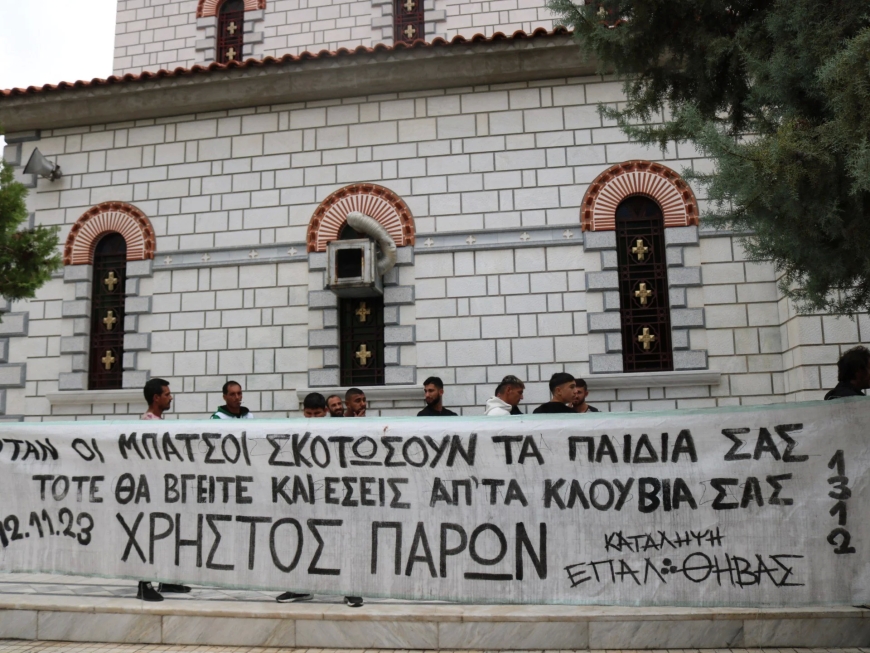 ΟΤΑΝ ΟΙ ΜΠΑΤΣΟΙ ΣΚΟΤΩΣΟΥΝ ΤΑ ΠΑΙΔΙΑ ΣΑΣ
ΤΟΤΕ ΘΑ ΒΓΕΙΤΕ ΚΑΙ ΕΣΕΙΣ ΑΠ'ΤΑ ΚΛΟΥΒΙΑ ΣΑΣ
12.11.23 ΧΡΗΣΤΟΣ ΠΑΡΩΝ
ΚΑΤΑΛΗΨΗ
ΕΠΑΛ ΘΗΒΑΣ
1312